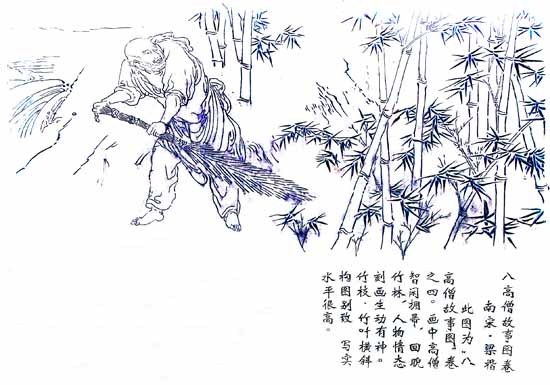 八高僧故事图卷
南宋·梁楷
此图为“八
高僧故事图”卷
之四。画中高僧
智闲拥帚、回眺
竹林，人物情态
刻画生动有神。
竹枝、竹叶横斜
构图别致 写实
水平很高。